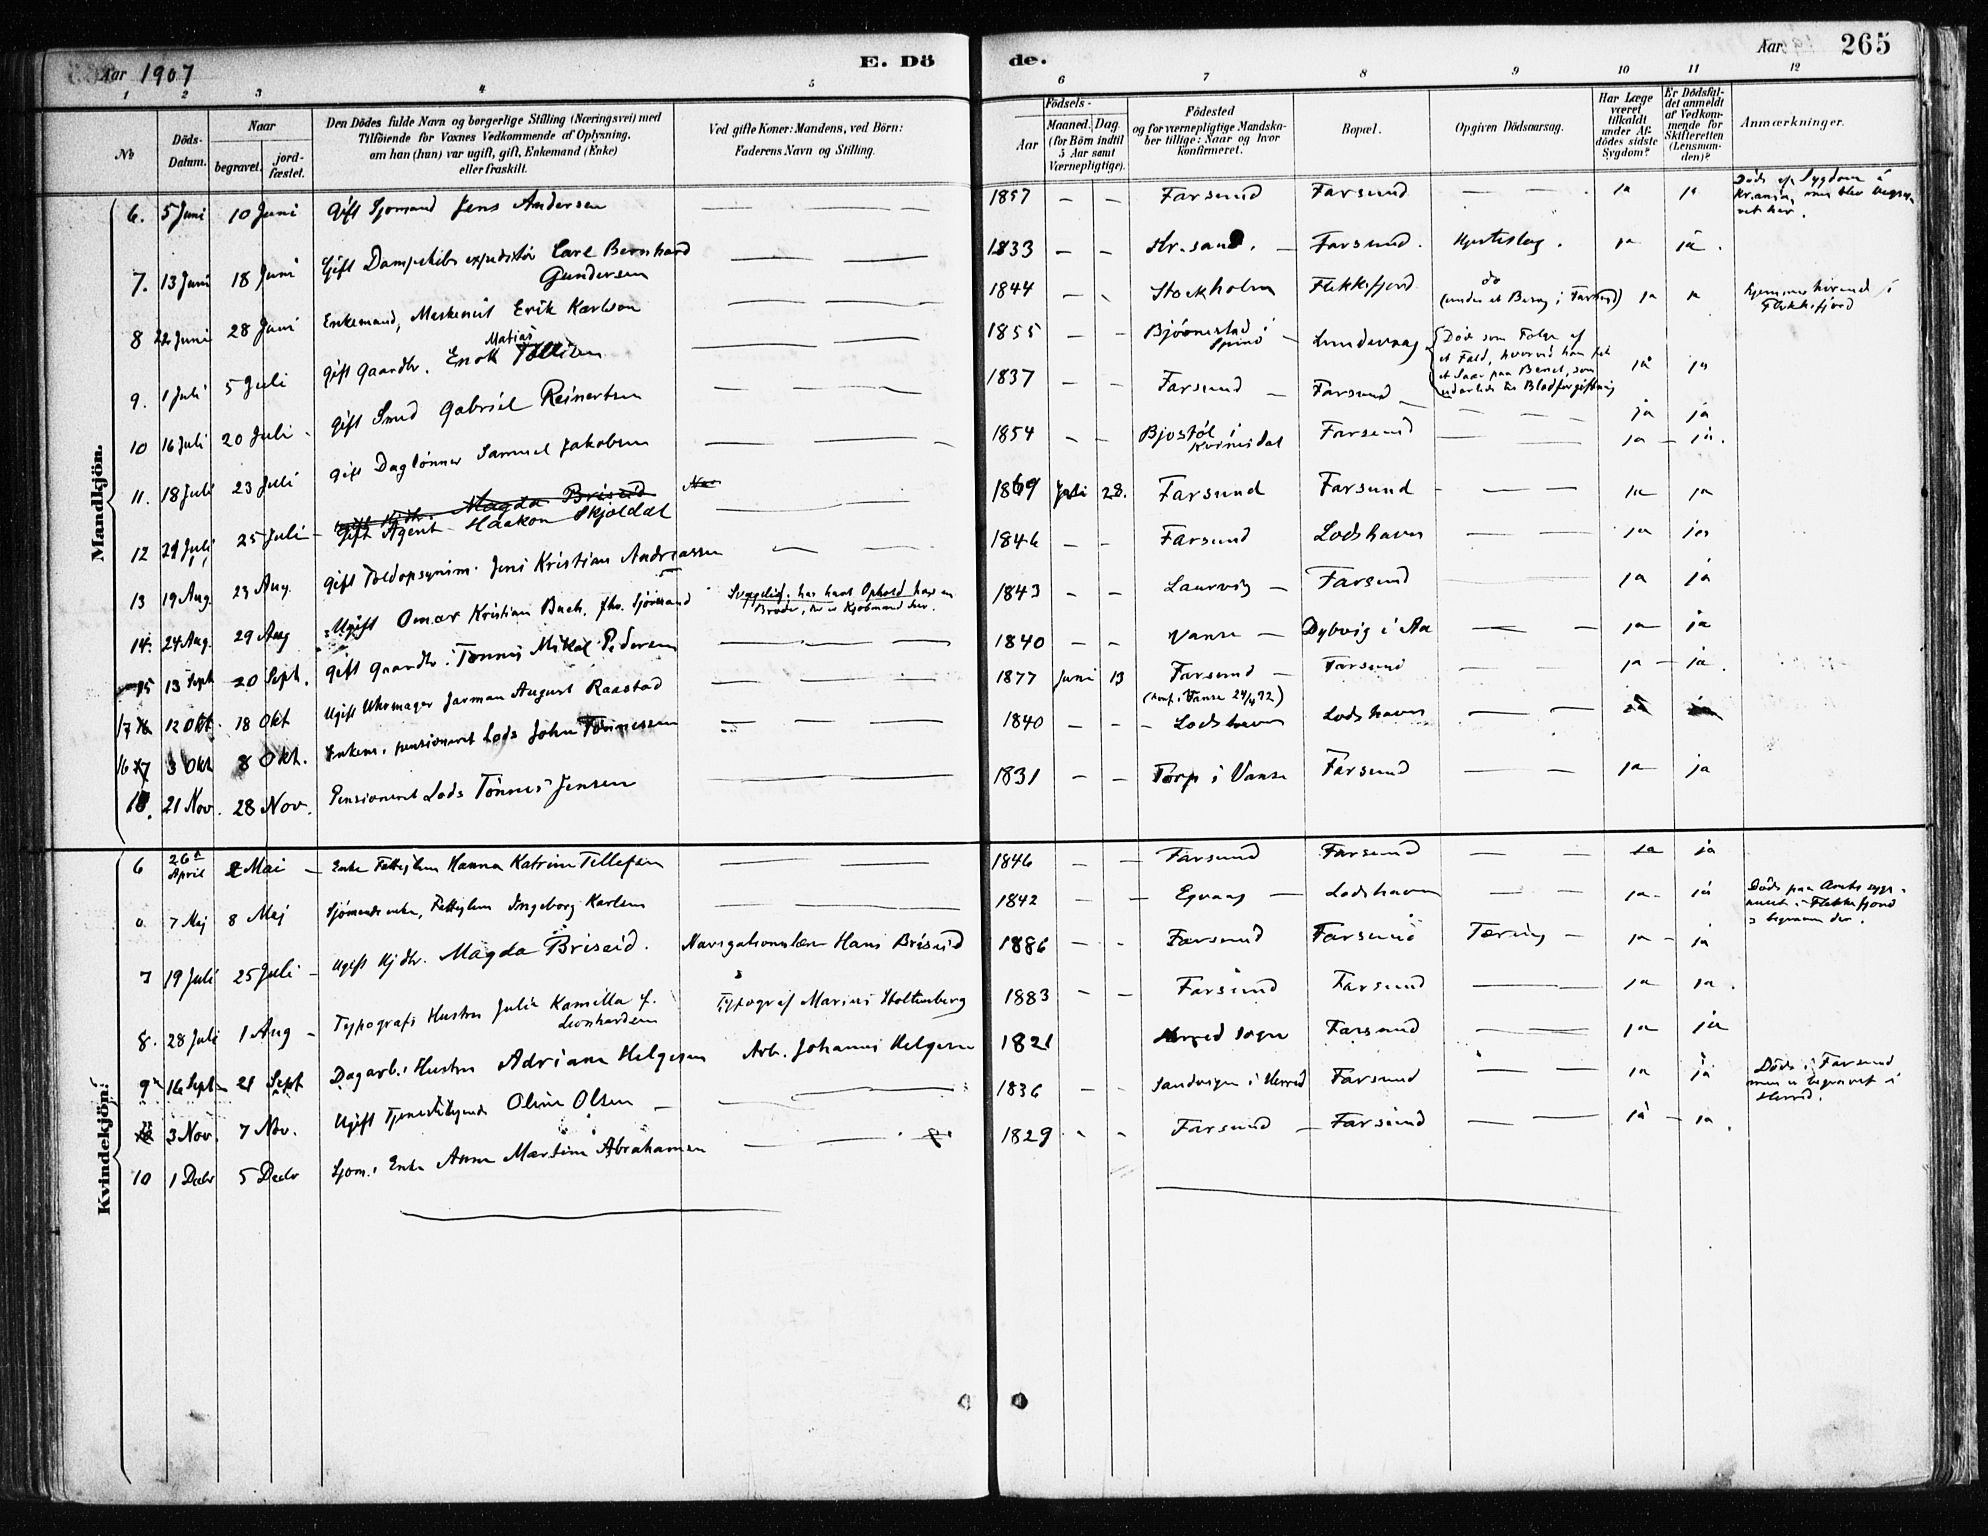 Aar 1907
E. Dö
de.
Aar
265
1 2 3 4 5
6 7 8 9 10 11 12
No
Döds-Datum.
Naar
begravet.
jord-fæstet.
Den Dödes fulde Navn og borgerlige Stilling (Næringsvei) med
Tilföiende for Voxnes Vedkommende af Oplysning,
om han (hun) var ugift, gift, Enkemand (Enke)
eller fraskilt.
Ved gifte Koner: Mandens, ved Börn:
Faderens Navn og Stilling.
Födsels-
Aar
Maaned. Dag
(for Börn indtil
5 Aar samt
Værnepligtige).
Födested
og for værnepligtige Mandska-
ber tillige: Naar og hvor
konfirmeret.
Bopæl.
Opgiven Dödsaarsag.
Har Læge
været
tilkaldt
under Af-
dödes sidste
Sygdom?
Er Dödsfal-
det anmeldt
af Vedkom-
mende for
Skifteretten
(Lensman-
den)?
Anmærkninger.
Mandkjön.
6. 5 Juni 10 Juni Gift Sjomand Jens Andersen — — 1857 – – Farsund Farsund — — ja ja Döds af Sygdom i
Kr.ania, men blev begra-
vet her.
7. 13 Juni 18 Juni Gift Dampskibsexpeditör Carl Bernhard
Gundersen — — 1833 – – Kr.sand. – Farsund. Hjerteslag. ja ja.
8 22 Juni 28 Juni Enkemand, Maskenist Erik Karlson — — 1844 – – Stockholm Flekkefjord do
(under et Besøg i Farsund) ja ja hjemmehörende i
Flekkefjord
9. 1 Juli 5 Juli Gift Gaardbr. Enok Matias Tollisen — — 1855 – – Bjørnestad i
Spind – Lundevaag Döde som Følge af
et Fald, hvorved han fik
et Saar paa Benet, som
udartede til Blodforgiftning ja ja
10 16 Juli 20 Juli – Gift Smed Gabriel Reinertsen — — 1837 – – Farsund – Farsund – — — ja ja
11. 18 Juli 23 Juli Gift Daglönner Samuel Jakobsen — — 1854 – – Bjostöl i
Kvinesdal Farsund — — ja – ja.
Magda Briseid
12 21 Juli 25 Juli – Gift Agent Haakon Skjoldal — — 1869 Juli 28. Farsund Farsund – — — ja ja
13 19 Aug. 23 Aug. Gift Toldopsynsm. Jens Kristian Andreassen — — 1846 – – Farsund Lodshavn — — ja ja
14. 24 Aug. 29 Aug Ugift Omar Kristian Buch, fhv. Sjömand havt Ophold hos en
Broder, der er Kjöbmand her. 1843 – – Laurvig – Farsund — — ja ja
15 13 Sept 20 Sept. Gift Gaardbr. Tønnes Mikal Pedersen — — 1840 – – Vanse – Dybvig i Aa — – ja – ja
17 12 Okt. 18 Okt Ugift Uhrmager Jarman August Raastad — — 1877 Juni 13 Farsund –
(konf. i Vanse 24/4 92) Farsund — — ja – ja.
16 3 Okt 8 Okt. Enkem. pensioneret Lods John Tönnessen — — 1840 – – – Lodshavn Lodshavn — — ja ja
18. 21 Nov. 28 Nov. Pensioneret Lods Tönnes Jensen — — 1831 – – Torp i Vanse Farsund — – ja – ja
Kvindekjön.
6 26
April 2 Mai – Enke Fattiglem Hanna Katrine Tellefsen — — 1846 – – Farsund Farsund — – ja ja
7 Maj 8 Maj Sjömandsenke, Fattiglem Ingeborg Karlsen — — 1842 – – Egvaag – Lodshavn — – ja – ja Döde paa Amtssyge-
huset i Flekkefjord
begraven der.
7 19 Juli 25 Juli – Ugift Kj dtr. Magda Briseid. Navigationslær Hans Briseid 1886 – – Farsund Farsund Tæring – ja – ja
8. 28 Juli 1 Aug – Typografs Hustru Julia Kamilla f.
Leonhardsen Typograf Marius Stoltenberg 1883 – – Farsund Farsund — ja ja.
9 16 Sept – 21 Sept Dagarb.s Hustru Adriane Helgesen Arb. Johannes Helgesen 1821 Herred Sogn Farsund — ja ja
3 Nov. 7 Nov. Ugift Tjenestepige Oline Olsen — — — 1836 – – Sandvigen i Herred Farsund — — ja ja Döde i Farsund
men er begravet i
Herred.
10 1 Decbr 5 Decbr Sjöm.s Enke Anne Martine Abrahamsen — — 1829 – – Farsund – Farsund — — ja – ja.